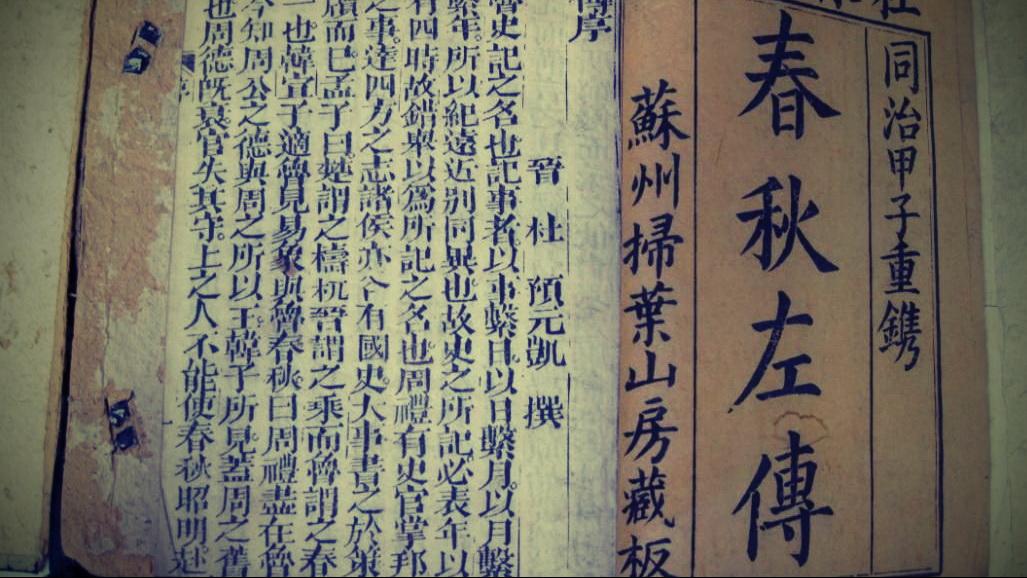 同治甲子重鐫
春秋左傳
蘇州掃葉山房藏板
傳序
晉 杜 預元凱 撰
魯史記之名也記事者。以事繫日。以日繫月。以月繫
繫年。所以紀遠近別同異也。故史之所記必表年以
有四時。故錯舉以爲所記之名也。周禮有史官掌邦
之事。達四方之志。諸侯亦各有國史。大事書之於策
牘而已。孟子曰。楚謂之檮杌。晉謂之乘。而魯謂之春
一也。韓宣子適魯。見易象與魯春秋。曰周禮盡在魯
今知周公之德。與周之所以王。韓子所見。蓋周之舊
也周德旣衰。官失其守。上之人不能使春秋昭明。赴